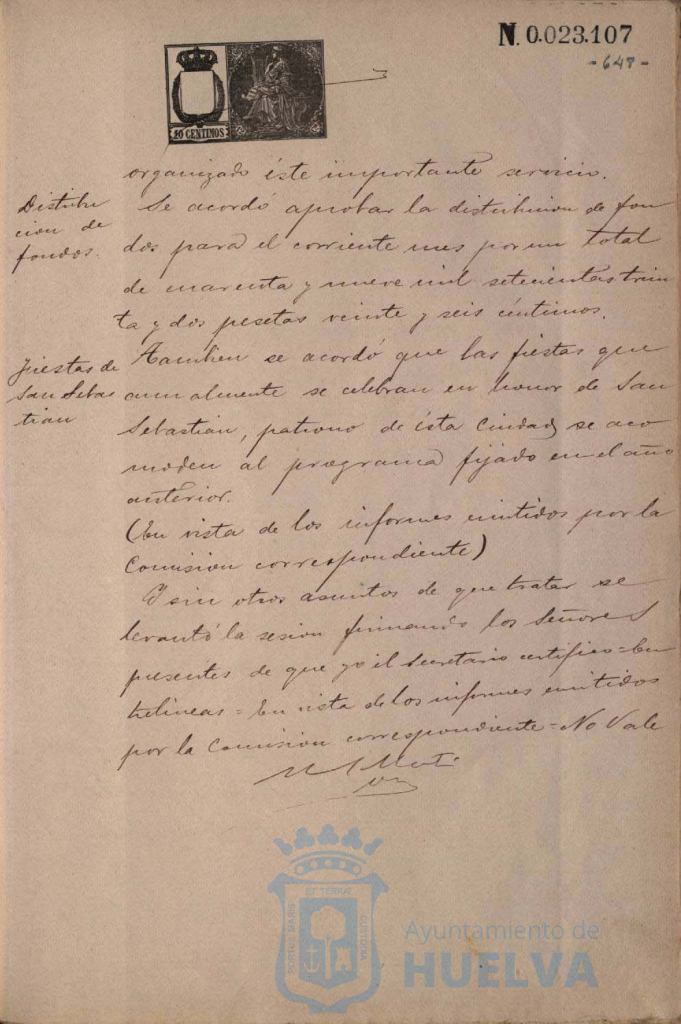 N. 0.023.107
- 648 -
20 CENTIMOS
organizado éste importante servicio.
Distribu
cion de
fondos.
Se acordó aprobar la distribucion de fon
dos para el corriente mes por un total
de cuarenta y nueve mil setecientas trein
ta y dos pesetas veinte y seis céntimos.
Fiestas de
San Sebas
tian
Tambien se acordó que las fiestas que
anualmente se celebran en honor de San
Sebastián, patrono de ésta Ciudad, se aco
moden al programa fijado en el año
anterior.
(En vista de los informes emitidos por la
Comision correspondiente)
Y sin otros asuntos de que tratar se
levantó la sesion firmando los Señores
presentes de que yo el Secretario certifico = En
trelineas = En vista de los informes emitidos
por la Comision correspondiente = No Vale
PORTUS MARIS
ET TERRAE
CUSTODIA
Ayuntamiento de
HUELVA